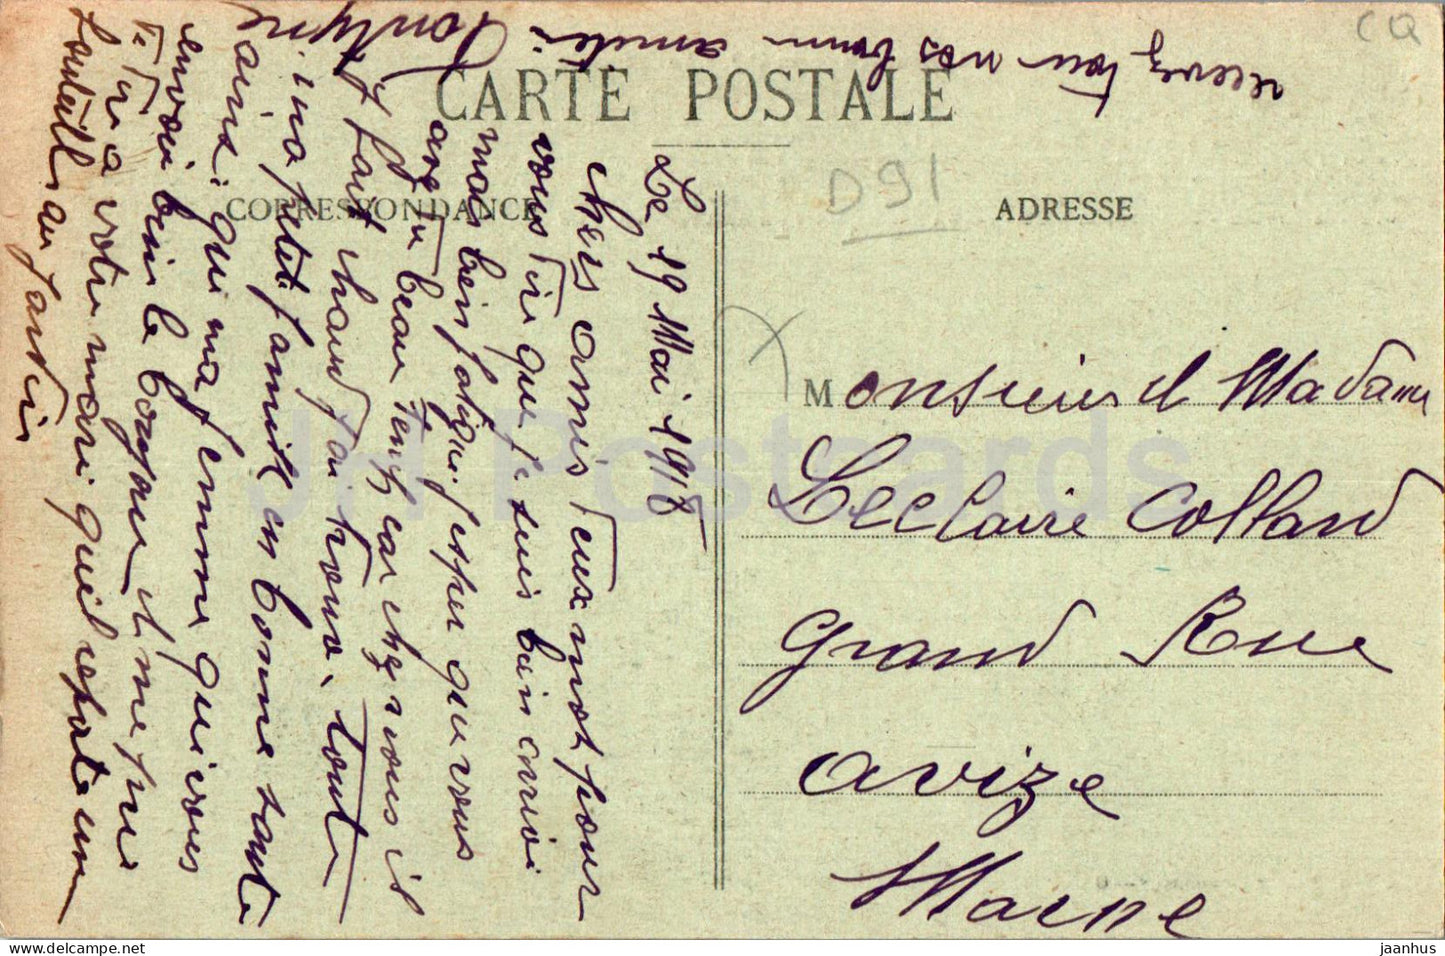 CARTE POSTALE
CORRESPONDANCE
ADRESSE
Le 19 Mai 1918
chers amis deux mot pour
vous dire que je suis bien arrivé
mais bien fatigué j'esper que vous
avez du beau temps car chez nous il
y fait chaud j'ai trouvé tout
ma petite famille en bonne santé
ainsi que ma femme qui vous
envoi bien le bonjour et me prie
de dire a votre mari qu'il reste un
au jardin
recevez tous nos bonnes amitiés
Monsieur et Madame
Leclaire Collard
grand Rue
avize
Marne
D91
CQ
JH Postcards
jaanhus